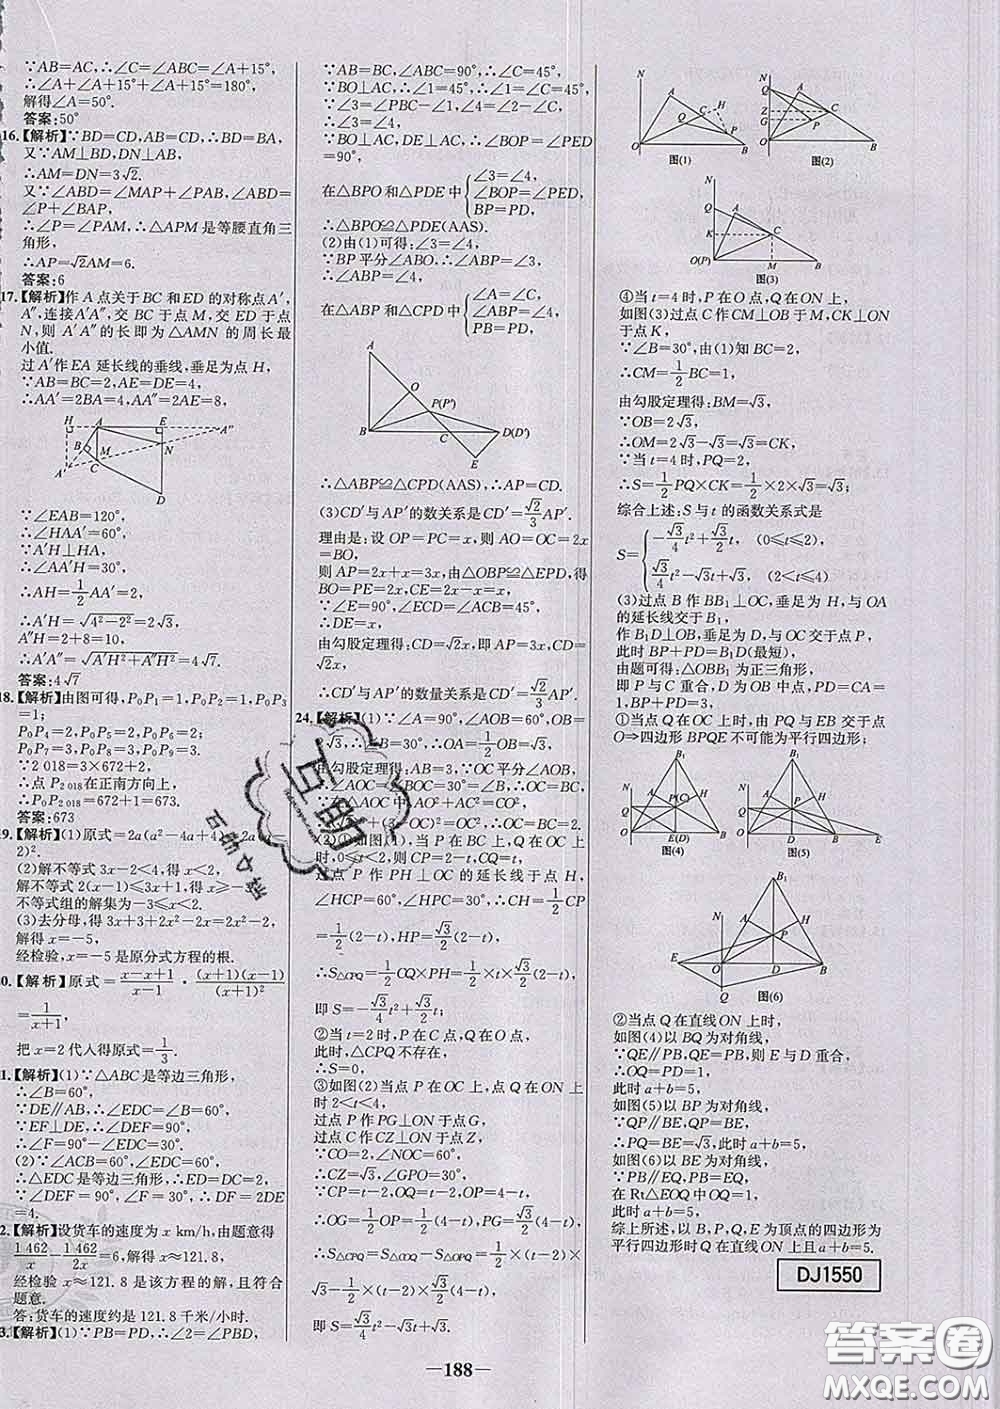 ∵AB=AC,∴∠C=∠ABC=∠A+15°,
∴∠A+∠A+15°+∠A+15°=180°,
解得∠A=50°.
答案:50°
16.【解析】∵BD=CD,AB=CD,∴BD=BA,
又∵AM⊥BD,DN⊥AB,
∴AM=DN=3√2.
又∵∠ABD=∠MAP+∠PAB,∠ABD=
∠P+∠BAP,
∴∠P=∠PAM,∴△APM是等腰直角三
角形,
∴AP=√2AM=6.
答案:6
17.【解析】作A点关于BC和ED的对称点A′,
A″,连接A′A″,交BC于点M,交ED于点
N,则A′A″的长即为△AMN的周长最
小值.
过A′作EA延长线的垂线,垂足为点H,
∵AB=BC=2,AE=DE=4,
∴AA′=2BA=4,AA″=2AE=8,
H A E A″
B M N
A′ C
D
∵∠EAB=120°,
∴∠HAA′=60°,
∵A′H⊥HA,
∴∠AA′H=30°,
∴AH=1/2AA′=2,
∴A′H=√(4²-2²)=2√3,
A″H=2+8=10,
∴A′A″=√(A′H²+A″H²)=4√7.
答案:4√7
18.【解析】由图可得,P₀P₁=1,P₀P₂=1,P₀P₃
=1;
P₀P₄=2,P₀P₅=2,P₀P₆=2;
P₀P₇=3,P₀P₈=3,P₀P₉=3;
∵2 018=3×672+2,
∴点P₂ ₀₁₈在正南方向上,
∴P₀P₂ ₀₁₈=672+1=673.
答案:673
19.【解析】(1)原式=2a(a²-4a+4)=2a(a-
2)².
(2)解不等式3x-2<4,得x<2,
解不等式2(x-1)≤3x+1,得x≥-3,
不等式组的解集为-3≤x<2.
(3)去分母,得3x+3+2x²-2x=2x²-2,
解得x=-5,
经检验,x=-5是原分式方程的根.
0.【解析】原式=(x-x+1)/(x-1)·(x+1)(x-1)/(x+1)²
=1/(x+1),
把x=2代入得原式=1/3.
1.【解析】(1)∵△ABC是等边三角形,
∴∠B=60°,
∵DE∥AB,∴∠EDC=∠B=60°,
∵EF⊥DE,∴∠DEF=90°,
∴∠F=90°-∠EDC=30°.
(2)∵∠ACB=60°,∠EDC=60°,
∴△EDC是等边三角形,∴ED=DC=2,
∵∠DEF=90°,∠F=30°,∴DF=2DE
=4.
2.【解析】设货车的速度为x km/h,由题意得
1 462/x-1 462/2x=6,解得x≈121.8,
经检验x≈121.8是该方程的解,且符合
题意.
答:货车的速度约是121.8千米/小时.
3.【解析】(1)∵PB=PD,∴∠2=∠PBD,
∵AB=BC,∠ABC=90°,∴∠C=45°,
∵BO⊥AC,∴∠1=45°,∴∠1=∠C=45°,
∵∠3=∠PBC-∠1,∠4=∠2-∠C,
∴∠3=∠4,
∵BO⊥AC,DE⊥AC,∴∠BOP=∠PED
=90°,
在△BPO和△PDE中{∠3=∠4,
∠BOP=∠PED,
BP=PD,
∴△BPO≌△PDE(AAS).
(2)由(1)可得:∠3=∠4,
∵BP平分∠ABO.∴∠ABP=∠3,
∴∠ABP=∠4,
在△ABP和△CPD中{∠A=∠C,
∠ABP=∠4,
PB=PD,
A
O
P(P′)
B C D(D′)
E
∴△ABP≌△CPD(AAS),∴AP=CD.
(3)CD′与AP′的数关系是CD′=√2/3AP′.
理由是:设OP=PC=x,则AO=OC=2x
=BO,
则AP=2x+x=3x,由△OBP≌△EPD,得
BO=PE=2x,CE=2x-x=x,
∵∠E=90°,∠ECD=∠ACB=45°,
∴DE=x,
由勾股定理得:CD=√2x,即AP=3x,CD=
√2x,
∴CD′与AP′的数量关系是CD′=√2/3AP′.
24.【解析】(1)∵∠A=90°,∠AOB=60°,OB=
2√3,∴∠B=30°,∴OA=1/2OB=√3,
由勾股定理得:AB=3,∵OC平分∠AOB,
∴∠AOC=∠BOC=30°=∠B,
∴OC=BC,在△AOC中,AO²+AC²=CO²,
∴(√3)²+(3-OC)²=OC²,∴OC=2=BC.
(2)①如图(1),当P在BC上,Q在OC上
时,0≤t<2,则CP=2-t,CQ=t,
过点P作PH⊥OC的延长线于点H,
∠HCP=60°,∠HPC=30°,∴CH=1/2CP
=1/2(2-t),HP=√3/2(2-t),
∴S△CPQ=1/2CQ×PH=1/2×t×√3/2(2-t),
即S=-√3/4t²+√3/2t;
②当t=2时,P在C点,Q在O点,
此时,△CPQ不存在,
∴S=0,
③如图(2)当点P在OC上,点Q在ON上
时2<t<4,
过点P作PG⊥ON于点G,
过点C作CZ⊥ON于点Z,
∵CO=2,∠NOC=60°,
∴CZ=√3,∠GPO=30°,
∵CP=t-2,OQ=t-2,OP=4-t,
∴OG=1/2OP=1/2(4-t),GP=√3/2(4-t),
∴S△CPQ=S△COQ-S△OPQ
=1/2×(t-2)×√3-1/2×(t-2)×√3/2(4-t),
即S=√3/4t²-√3t+√3.
N
A C H
Q
P
O B
图(1)
N
Q A
Z C
G P
O B
图(2)
N
Q A
K C
O(P) M B
图(3)
④当t=4时,P在O点,Q在ON上,
如图(3)过点C作CM⊥OB于M,CK⊥ON
于点K,
∵∠B=30°,由(1)知BC=2,
∴CM=1/2BC=1,
由勾股定理得:BM=√3,
∵OB=2√3,
∴OM=2√3-√3=√3=CK,
∵当t=4时,PQ=2,
∴S=1/2PQ×CK=1/2×2×√3=√3;
综合上述:S与t的函数关系式是
S={-√3/4t²+√3/2t, (0≤t≤2)
√3/4t²-√3t+√3, (2<t≤4)
(3)过点B作BB₁⊥OC,垂足为H,与OA
的延长线交于B₁,
作B₁D⊥OB,垂足为D,与OC交于点P,
此时BP+PD=B₁D(最短),
由题可得:△OBB₁为正三角形,
即P与C重合,D为OB中点,PD=CA=1
①当点Q在OC上时,由PQ与EB交于点
O⇒四边形BPQE不可能为平行四边形;
N B₁
A H
Q P(C)
O E(D) B
图(4)
N B₁
A H
Q P
O D B E
图(5)
B₁
N A H
P
E O D B
Q
图(6)
②当点Q在直线ON上时,
如图(4)以BQ为对角线,
∵QE∥PB,QE=PB,则E与D重合,
∴OQ=PD=1;
此时a+b=5,
如图(5)以BP为对角线,
∵QP∥BE,QP=BE,
∴PQ=BE=√3,此时a+b=5,
如图(6)以BE为对角线,
∵PB∥EQ,PB=EQ,
在Rt△EOQ中OQ=1,
此时a+b=5.
综上所述,以B,P,Q,E为顶点的四边形为
平行四边形时Q在直线ON上且a+b=5.
DJ1550
—188—
互助
答案圈
MXQE.COM